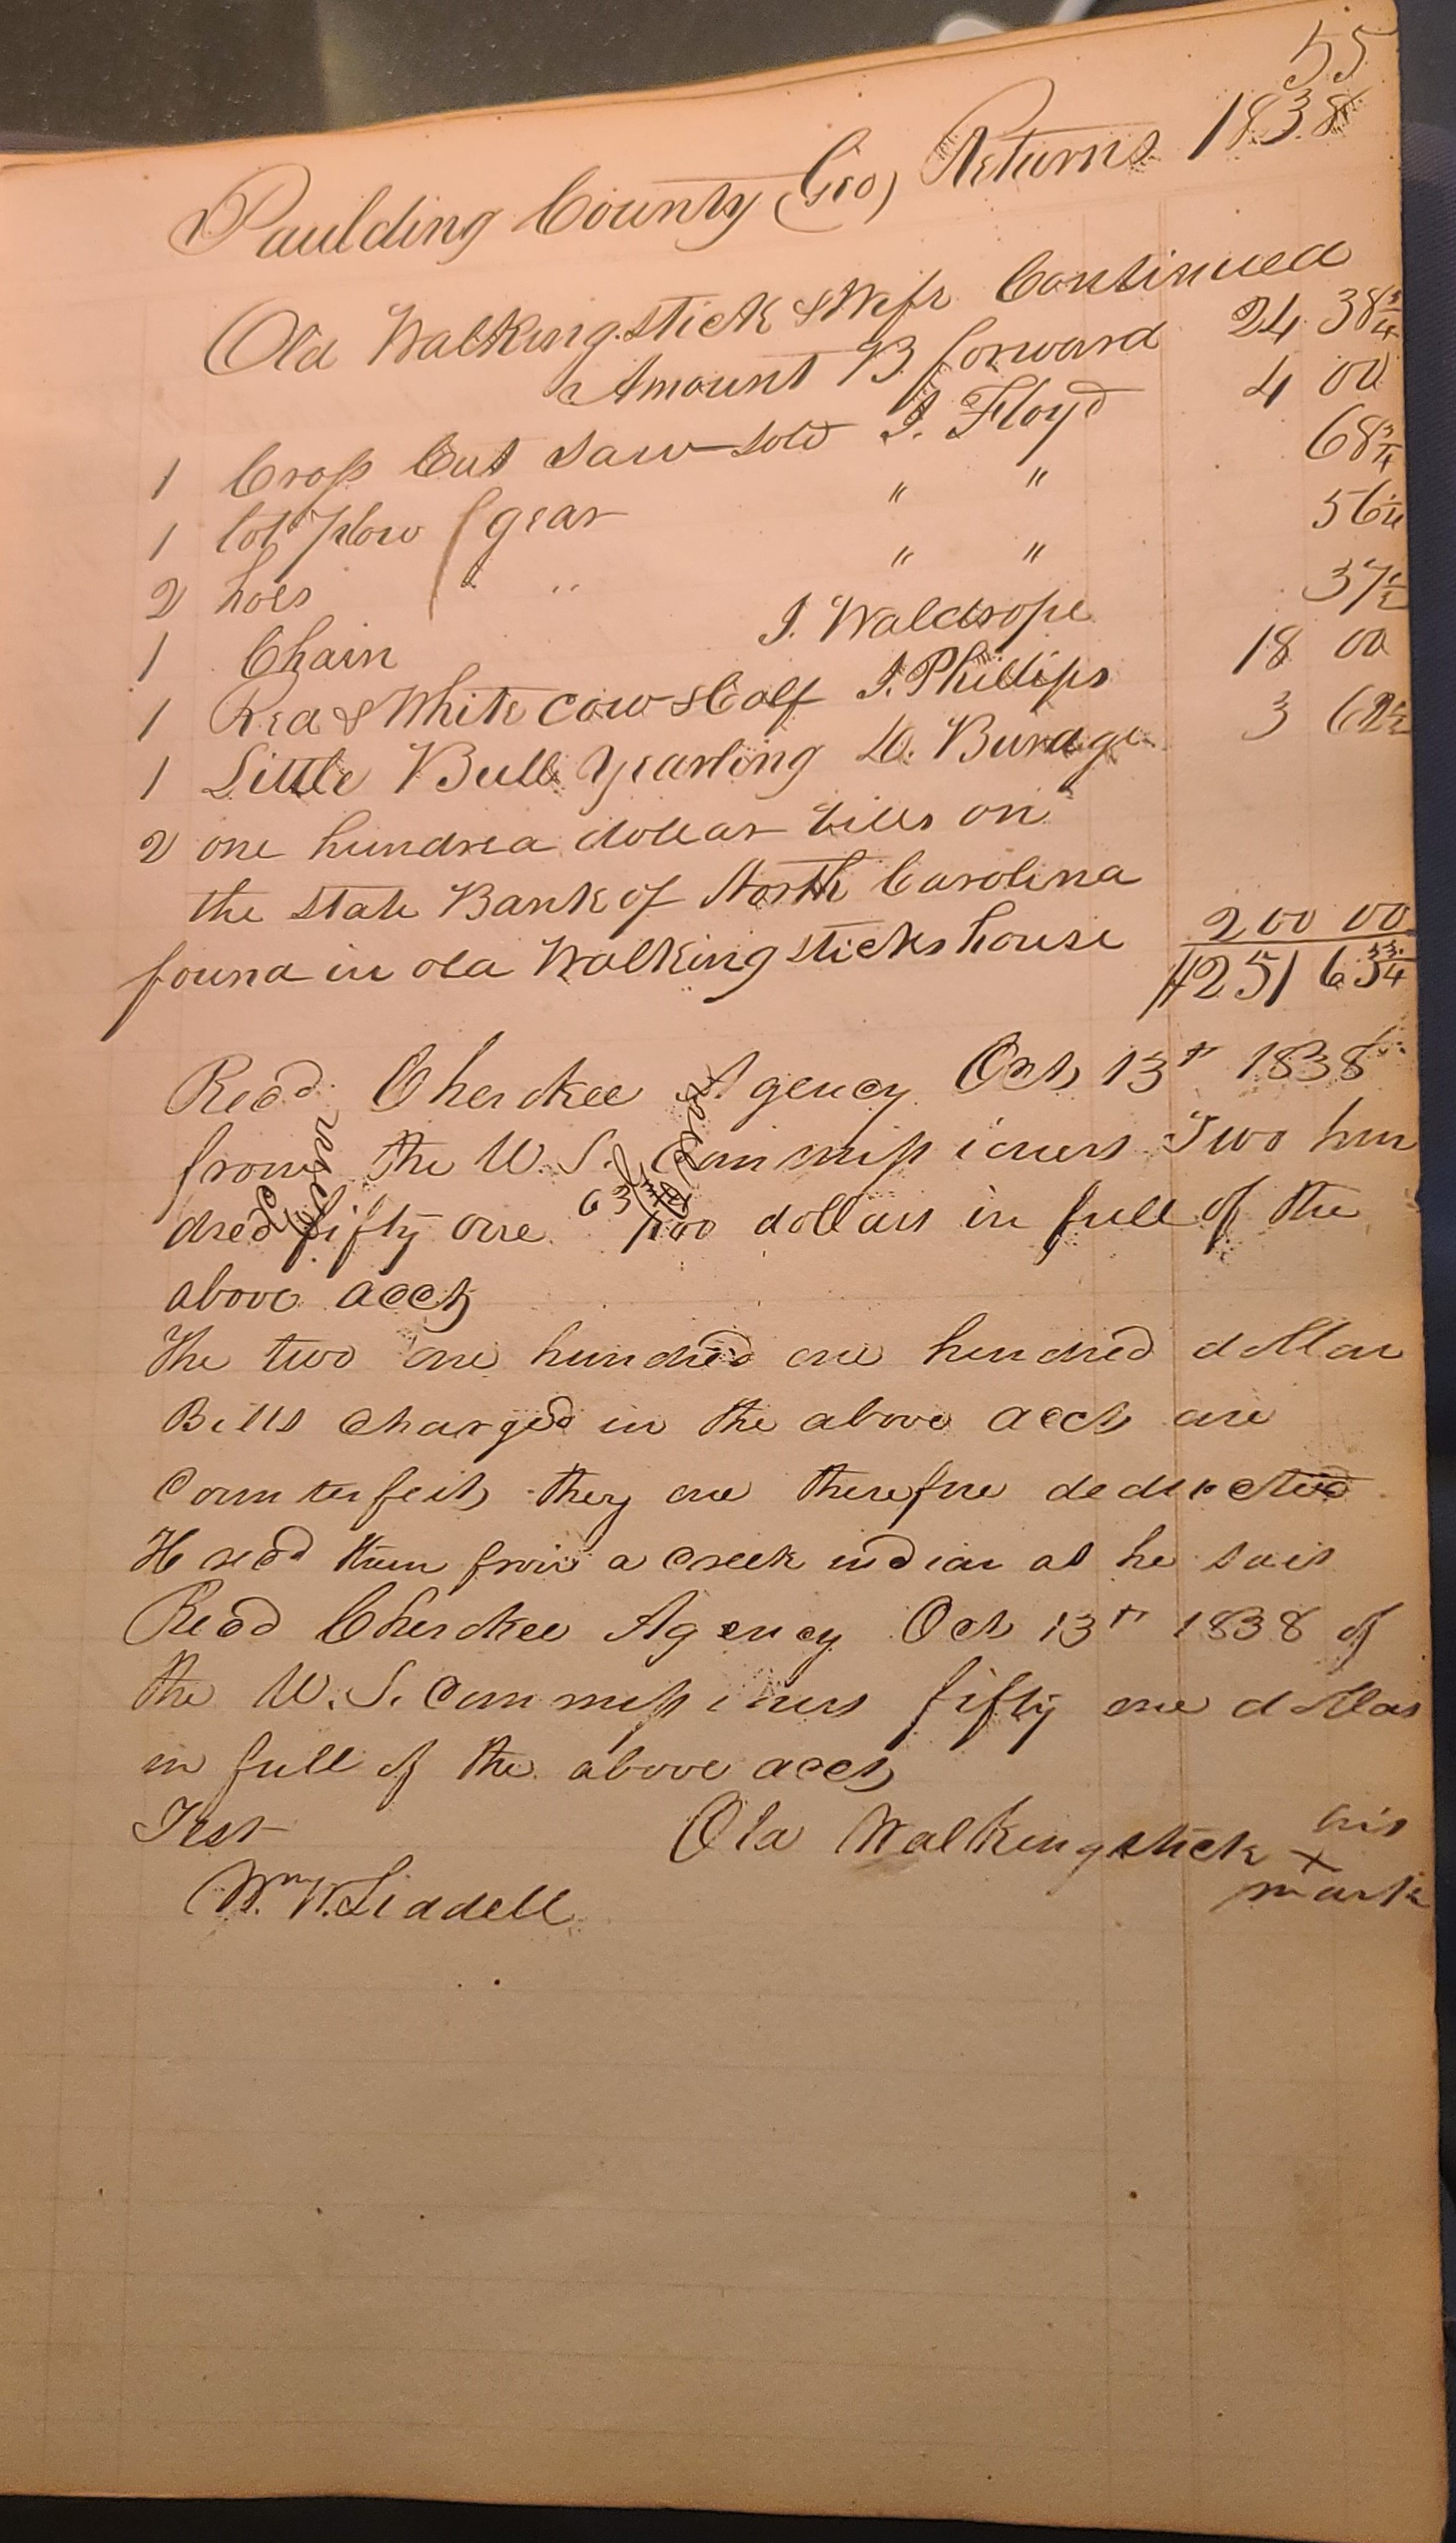 55
Paulding County (Geo) Returns 1838
Old Walkingstick & Wife Continued
Amount B forward 24 38¾
1 Cross Cut Saw sold J. Floyd 4 00
1 lot Plow gear " " 68¾
2 hoes " " " " 56¼
1 Chain J. Waldrope 37½
1 Red & White cow & Calf J. Phillips 18 00
1 Little Bull Yearling D. Burage 3 62½
2 one hundred dollar bills on
the State Bank of North Carolina
found in old Walking sticks house 200 00
$251 63¾
Recd Cherokee Agency Oct 13th 1838
from the U.S. Commissioners Two hun
dred fifty one 63¾/100 dollars in full of the
above acct
The two one hundred one hundred dollar
Bills charged in the above acct are
Counterfeit, they are therefore deducted
He recd them from a Creek indian as he sais
Recd Cherokee Agency Oct 13th 1838 of
the U.S. Commissioners fifty one dollars
in full of the above acct
Test Old Walkingstick his
x
mark
Wm W. Liddell